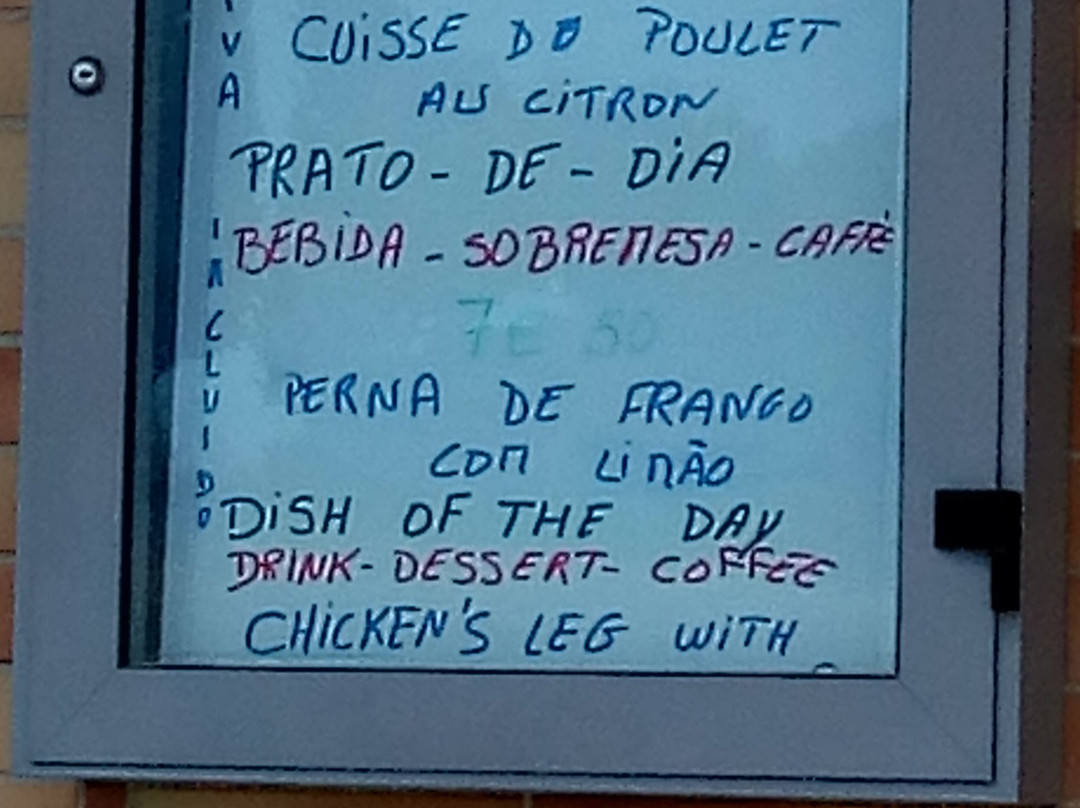 CUiSSE DO POULET
AU CiTRON
PRATO - DE - DiA
BEBiDA - SOBREMESA - CAFFÈ
7E 50
PERNA DE FRANGO
COM LiMÃO
DiSH OF THE DAY
DRINK - DESSERT - COFFEE
CHiCKEN'S LEG WiTH
IVA
INCLUIDO